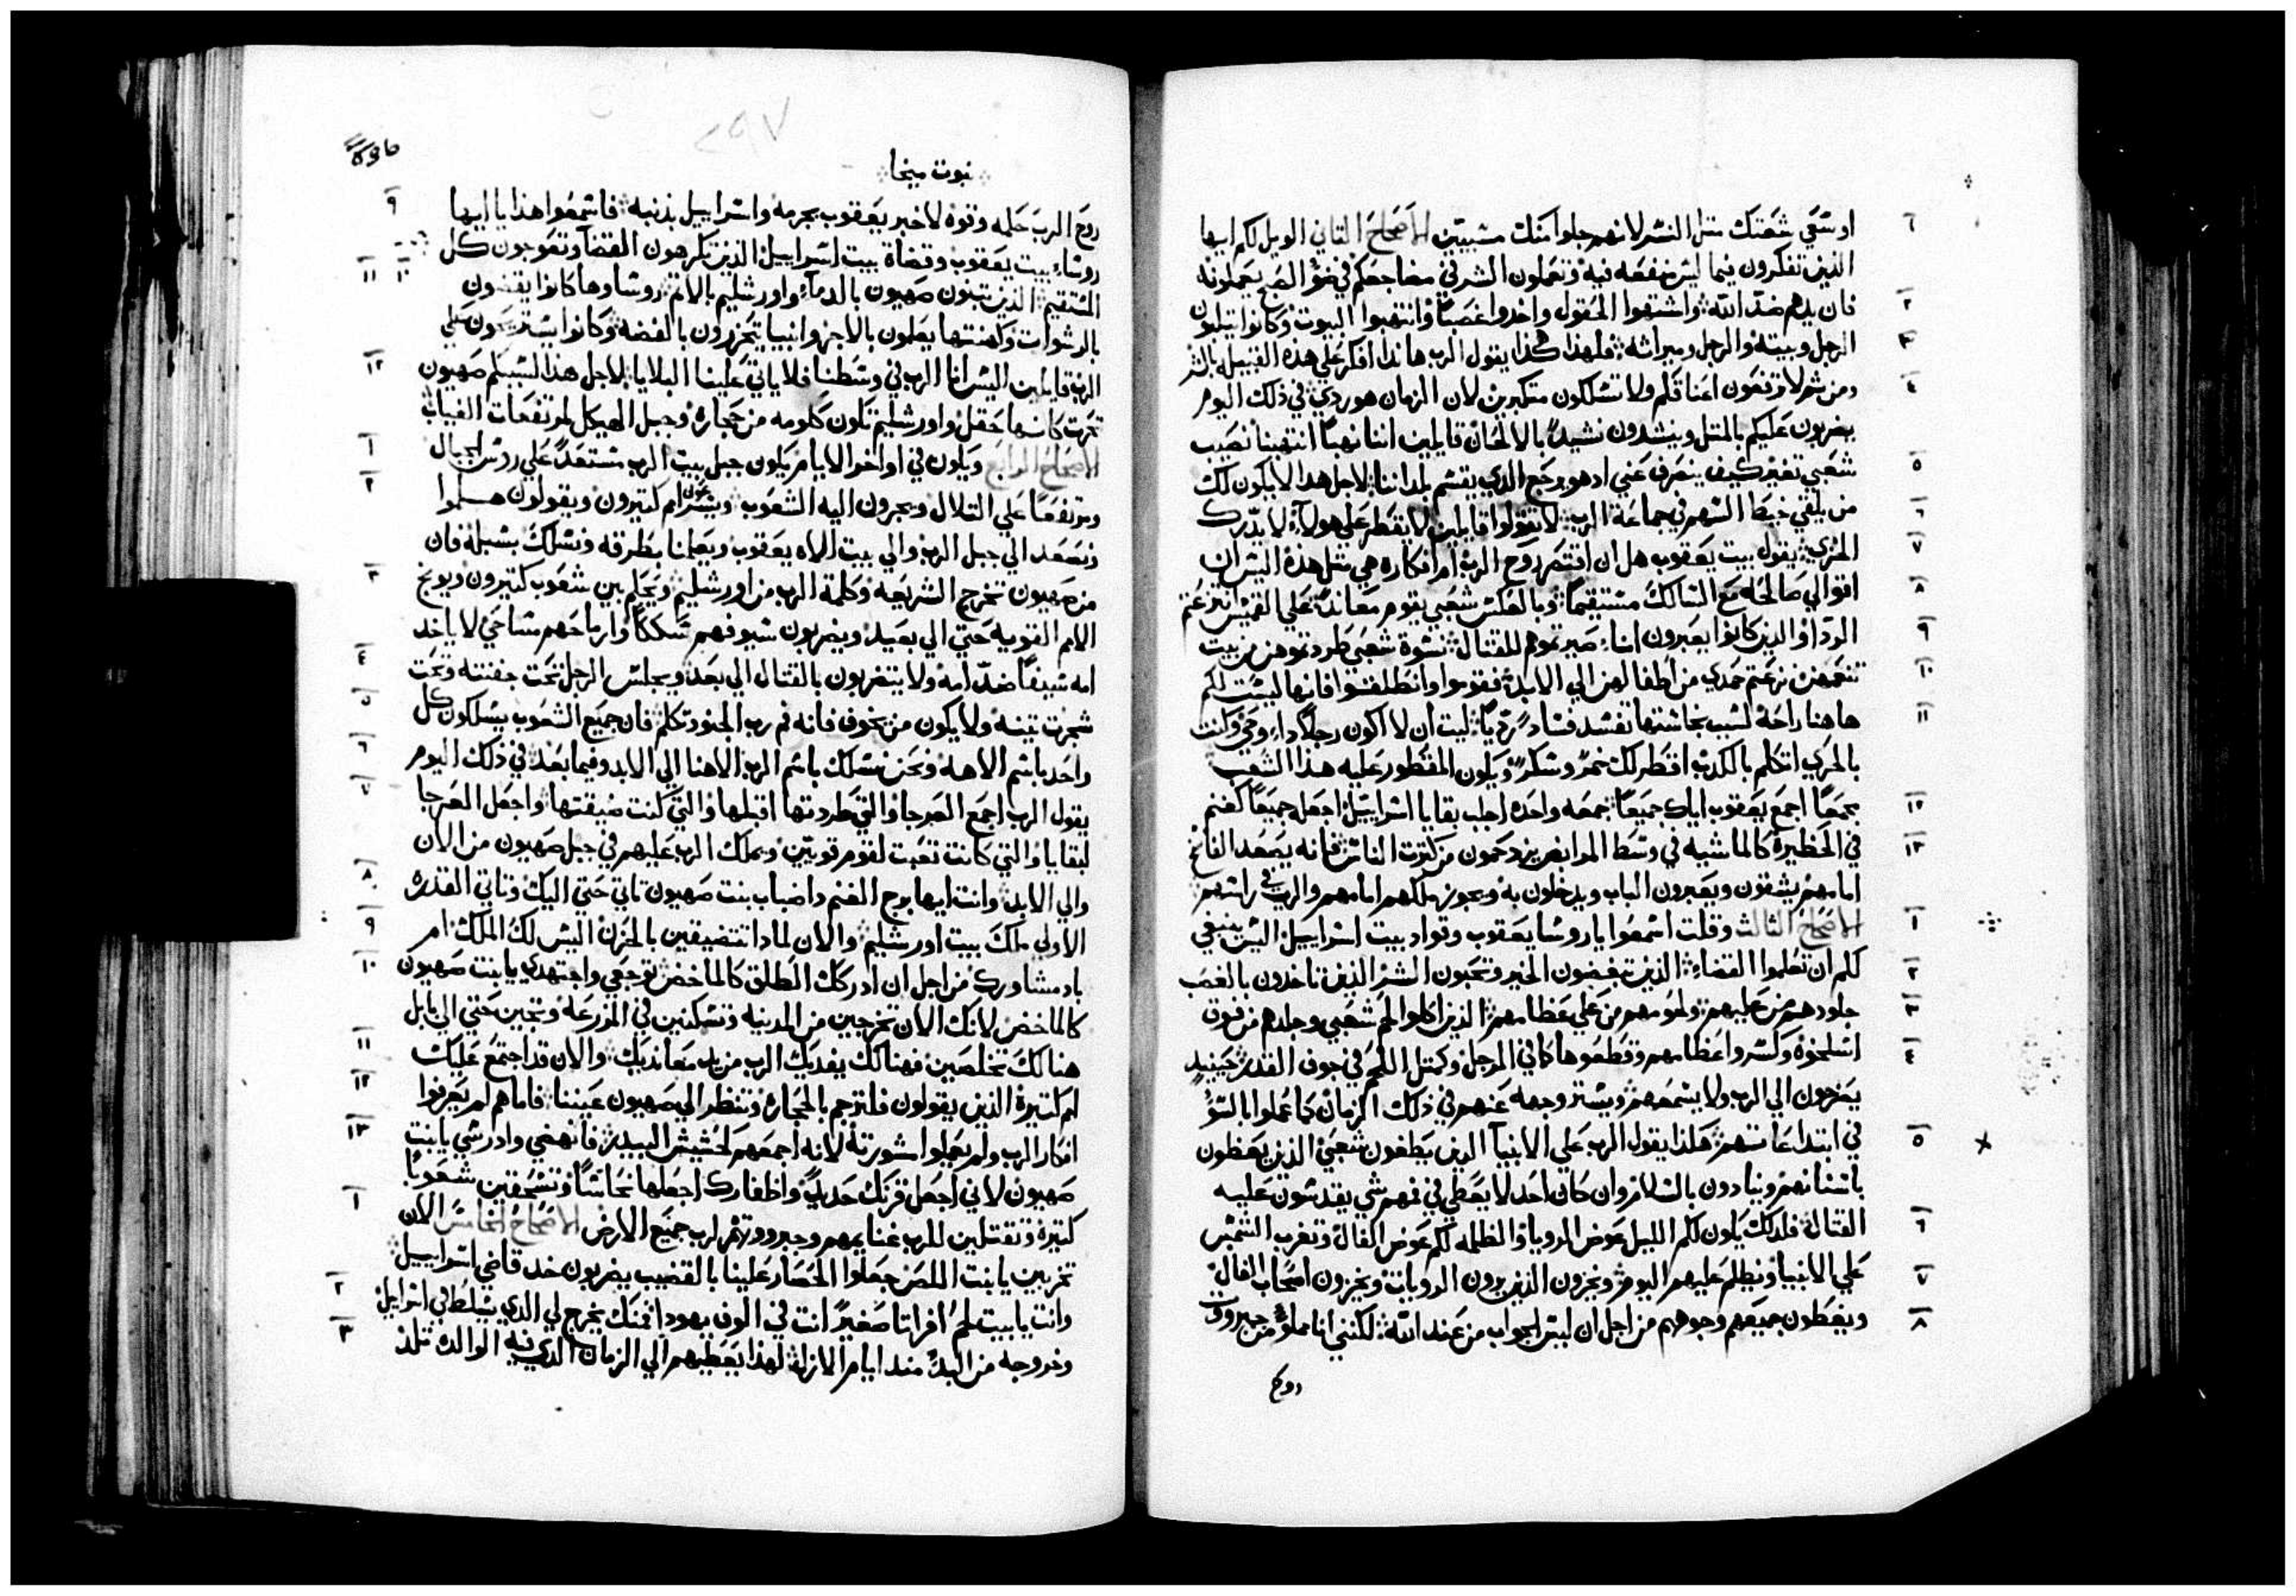 اوسعي شعتك متل النسر لانهم جلوا منك مسبيين الاصحاح التاني الويل لكم ايها
الذين تفكرون فيما ليس منفعه فيه وتعملون الشر في مضاجعكم في ضو الصبح يعملونه
فان يدهم ضد الله واشتهوا الحقول واخدوا غصبا وانتهبوا البيوت وكانوا يتلبون
الرجل وبيته والرجل وميراثه فلهذا هكذا يقول الرب هاندا افكر علي هذه القبيله بالشر
ومن تم لا ترفعون اعناقكم ولا تسلكون متكبرين لان الزمان هو ردي في ذلك اليوم
يضربون عليكم بالمتل وينشدون نشيدا بالالحان قايلين اننا نهبا انتهبنا نصيب
شعبي تغير كيف ينصرف عني اد هو يرجع الدي يقسم بلداننا لاجل هدا لا يكون لك
من يلقي خيط السهم في جماعة الرب لا تقولوا قايلين لا يقطر علي هولاء لا يدرك
الخزي يقول بيت يعقوب هل ان انتقم روح الرب ام افكاره هي متل هذه اليس ان
اقوالي صالحه مع السالك مستقيما وبالعكس شعبي يقوم معاندا علي القميص نزعتم
الردا والدين كانوا يعبرون امناء صيرتموهم للقتال نسوة شعبي طردتموهن من بيت
تنعمهن نزعتم حمدي من اطفالهن الي الابد فقوموا وانطلقوا فانها ليست لكم
هاهنا راحة لسبب نجاستها تفسد فسادا رديا ليت ان لا اكون رجلا دا روح وكنت
بالحري اتكلم بالكدب اقطر لك خمر وسكر ويكون المقطور عليه هذا الشعب
بجمعا اجمع يعقوب اياك جميعا بجمعه واحده اجلب بقايا اسراييل اجعله جميعا كغنم
في الحظيرة كالماشيه في وسط المرابض يزدحمون من كترت الناس فانه يصعد الفاتح
امامهم يشقون ويعبرون الباب ويدخلون به ويجوز ملكهم امامهم والرب في راسهم
الاصحاح التالت وقلت اسمعوا يا روسا يعقوب وقواد بيت اسراييل اليس ينبغي
لكم ان تعلموا القضاء الذين تبغضون الخير وتحبون الشر الذين تاخدون بالغصب
جلودهم من عليهم ولحومهم من علي عظامهم الذين اكلوا لحم شعبي وجلدهم من فوق
اسلخوه وكسروا عظامهم وقطعوها كما في المرجل وكمتل اللحم في جوف القدر حينيد
يصرخون الي الرب ولا يسمعهم ويستر وجهه عنهم في ذلك الزمان كما عملوا بالسو
في ابتداعاتهم هكذا يقول الرب علي الانبيا الدين يطغون شعبي الذين يعضون
باسنانهم وينادون بالسلام وان كان احد لا يعطي في فمهم شي يقدسون عليه
القتال فلدلك يكون لكم الليل عوض الرويا والظلمه لكم عوض الفال وتغرب الشمس
علي الانبيا ويظلم عليهم اليوم ويخزون الذين يرون الرويات ويخزون اصحاب الفال
ويغطون جميعهم وجوههم من اجل ان ليس الجواب من عند الله لكنني انا مملو من جبروت
روح
نبوت ميخا
روح الرب حكمه وقوه لاخبر يعقوب بجرمه واسراييل بذنبه فاسمعوا هذا يا ايها
روساء بيت يعقوب وقضاة بيت اسراييل الذين تكرهون القضا وتعوجون كل
المستقيم الذين تبنون صهيون بالدماء واورشليم بالاتم روساوها كانوا يقضون
بالرشوات وكهنتها يعلمون بالاجر وانبياءها يتخرصون بالفضه وكانوا يستريحون علي
الرب قايلين اليس انا الرب في وسطنا فلا ياتي علينا البلايا لاجل هذا لسببكم صهيون
تحرت كانها حقل واورشليم تكون ككومه من حجارة وجبل الهيكل لمرتفعات الغياب
الاصحاح الرابع ويكون في اواخر الايام يكون جبل بيت الرب مستعدا علي روس الجبال
ومرتفعا علي التلال ويجرون اليه الشعوب ويسرعون امم كتيرون ويقولون هلموا
نصعد الي جبل الرب والي بيت الاه يعقوب ويعلمنا بطرقه ونسلك بسبله فان
من صهيون تخرج الشريعه وكلمة الرب من اورشليم ويحكم بين شعوب كتيرون ويوبخ
الامم القويه حتي الي بعيد ويضربون سيوفهم سككا وارماحهم مساحي لا ياخد
امه سيفا ضد امه ولا يتضربون بالقتال الي بعد ويجلس الرجل تحت جفنته وتحت
شجرت تينه ولا يكون من يخوف فانه فم رب الجنود تكلم فان جميع الشعوب يسلكون كل
واحد باسم الاهه ونحن نسلك باسم الرب الاهنا الي الابد وفيما بعد في ذلك اليوم
يقول الرب اجمع العرجا والتي طردتها اقبلها والتي كنت ضيقتها واجعل العرجا
لبقايا والتي كانت تعبت لقوم قويين ويملك الرب عليهم في جبل صهيون من الان
والي الابد وانت ايها برج الغنم دا ضباب بنت صهيون تاتي حتي اليك وتاتي القدره
الاولي ملك بيت اورشليم والان لمادا تتضيقين بالحزن اليس لك الملك ام
باد مشاورك من اجل ان ادركك الطلق كالماخض توجعي واجتهدي يا بنت صهيون
كالماخض لانك الان تخرجين من المدينه وتسكنين في المزرعه وتجين حتي الي بابل
هنالك تخلصين فهنالك يفديك الرب من يد معانديك والان قد اجتمع عليك
امم كتيرة الذين يقولون فلترجم بالحجارة وتنظر الي صهيون عيننا فاما هم لم يعرفوا
افكار الرب ولم يعلموا مشورته لانه اجمعهم كحشيش البيدر فانهضي وادرسي يا بنت
صهيون لاني اجعل قرنك حديد واظفارك اجعلها نحاسا وتسحقين شعوبا
كتيرة وتقتلين للرب غنايمهم وجبروتهم لرب جميع الارض الاصحاح الخامس الان
تخربين يا بنت اللص جعلوا الحصار علينا بالقضيب يضربون خد قاضي اسراييل
وانت يا بيت لحم افراتا صغيرا انت في الوف يهودا فمنك يخرج لي الدي يتسلط في اسراييل
وخروجه من البدء مند ايام الازل لهذا يعطيهم الي الزمان الدي فيه الوالده تلد